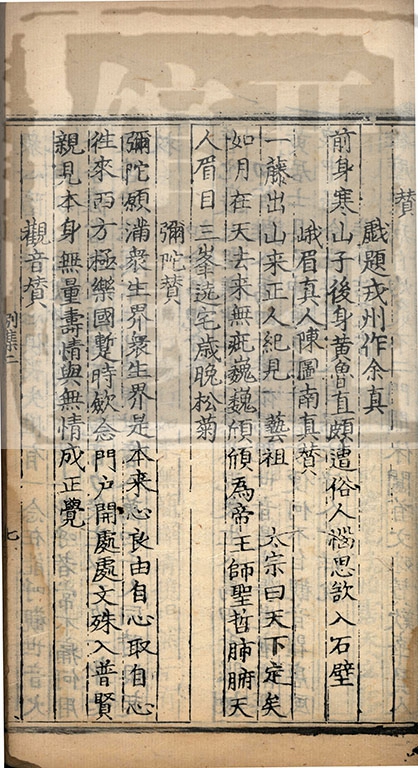 賛
戲題戎州作余真
前身寒山子後身黃魯直頗遭俗人惱思欲入石壁
峨眉真人陳圖南真賛
一藤出山来正人紀見 藝祖 太宗曰天下定矣
如月在天去來無疵巍巍頎頎為帝王師聖哲肺腑天
人眉目三峯選宅歲晚松菊
彌陀賛
彌陀願滿衆生界衆生界是本来心良由自心取自心
徃來西方極樂國蹔時斂念門户開處處文殊入普賢
親見本身無量壽情與無情成正覺
觀音賛
別集二
七